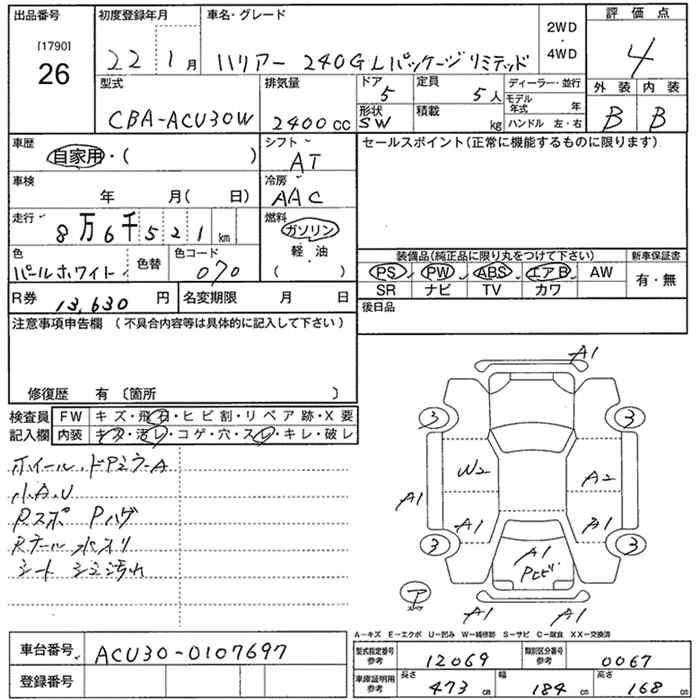 出品番号 初度登録年月 車名・グレード 2WD・4WD 評価点
[1790]
26 22 1月 ハリアー 240G Lパッケージリミテッド 4
型式 排気量 ドア 5 定員 5人 ディーラー・並行 外装 内装
CBA-ACU30W 2400cc 形状 SW 積載 kg モデル年式 年 B B
ハンドル 左・右
車歴 自家用・( ) シフト AT セールスポイント(正常に機能するものに限ります)
車検 年 月( 日) 冷房 AAC
走行 8万6千521km 燃料 ガソリン
軽・油
( )
色 パールホワイト 色替 色コード 070
装備品(純正品に限り丸をつけて下さい) 新車保証書
PS PW ABS エアB AW 有・無
SR ナビ TV カワ
R券 13,630円 名変期限 月 日 後日品
注意事項申告欄 (不具合内容等は具体的に記入して下さい)
修復歴 有 〔箇所 〕
検査員記入欄 FW キズ・飛石・ヒビ割・リペア跡・X要
内装 キズ・汚レ・コゲ・穴・スレ・キレ・破レ
ホイール.ドアミラーA
小A.U
R.スポ Pハゲ
Rテール 水入リ
シート シミ汚れ
A1
3 3
W2 A2
A1
A1 A1
3 3
A1
Pヒビ
ア
A1 A1
A-キズ E-エクボ U-凹み W-補修跡 S-サビ C-腐食 XX-交換済
車台番号 ACU30-0107697
登録番号
型式指定番号 参考 12069 類別区分番号 参考 0067
車庫証明用 参考 長さ 473cm 幅 184cm 高さ 168cm